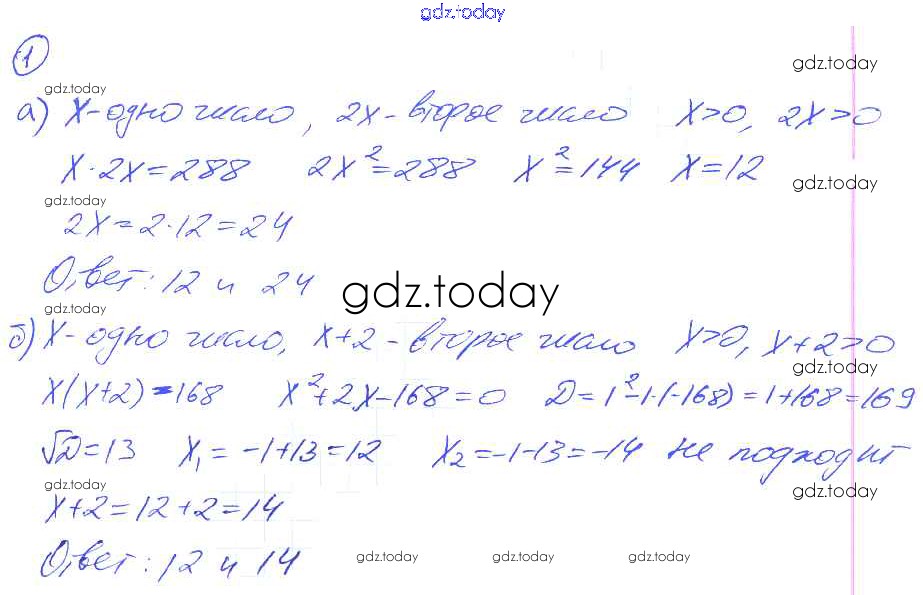 gdz.today
1
gdz.today
gdz.today
а) x - одно число, 2x - второе число x>0, 2x>0
x·2x=288 2x²=288 x²=144 x=12
gdz.today
gdz.today
2x=2·12=24
Ответ: 12 и 24
gdz.today
gdz.today
б) x - одно число, x+2 - второе число x>0, x+2>0
gdz.today
x(x+2)=168 x²+2x-168=0 D=1²-1·(-168)=1+168=169
√D=13 x₁=-1+13=12 x₂=-1-13=-14 не подходит
gdz.today
gdz.today
x+2=12+2=14
Ответ: 12 и 14
gdz.today gdz.today gdz.today